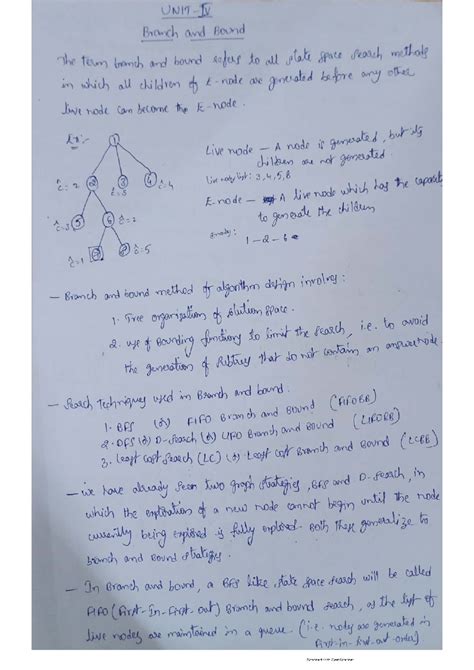 UNIT-IV
Branch and Bound
The term branch and bound refers to all state space search methods
in which all children of E-node are generated before any other
live node can become the E-node.
Ex:-
1
ĉ=2 2 3 4 ĉ=4
ĉ=3 5 6 ĉ=2
ĉ=1 8 ĉ=5
Live node – A node is generated, but its
children are not generated.
Live node list: 3,4,5,8
E-node – A live node which has the capacity
to generate the children
1-2-6
– Branch and bound method of algorithm design involves:
1. Tree organization of solution space.
2. use of Bounding functions to limit the search, i.e. to avoid
the generation of subtrees that do not contain an answer node.
– Search Techniques used in Branch and bound:
1. BFS (or) FIFO Branch and Bound (FIFOBB)
2. DFS (or) D-Search (or) LIFO Branch and Bound (LIFOBB)
3. Least cost Search (LC) (or) Least cost Branch and Bound (LCBB)
– we have already seen two graph strategies, BFS and D-search, in
which the exploration of a new node cannot begin until the node
currently being explored is fully explored. Both these generalize to
branch and Bound strategies.
– In Branch and bound, a BFS like state space search will be called
FIFO (First-In-First-out) Branch and bound search, as the list of
live nodes are maintained in a queue. (i.e. nodes are generated in
First-in-first-out order)